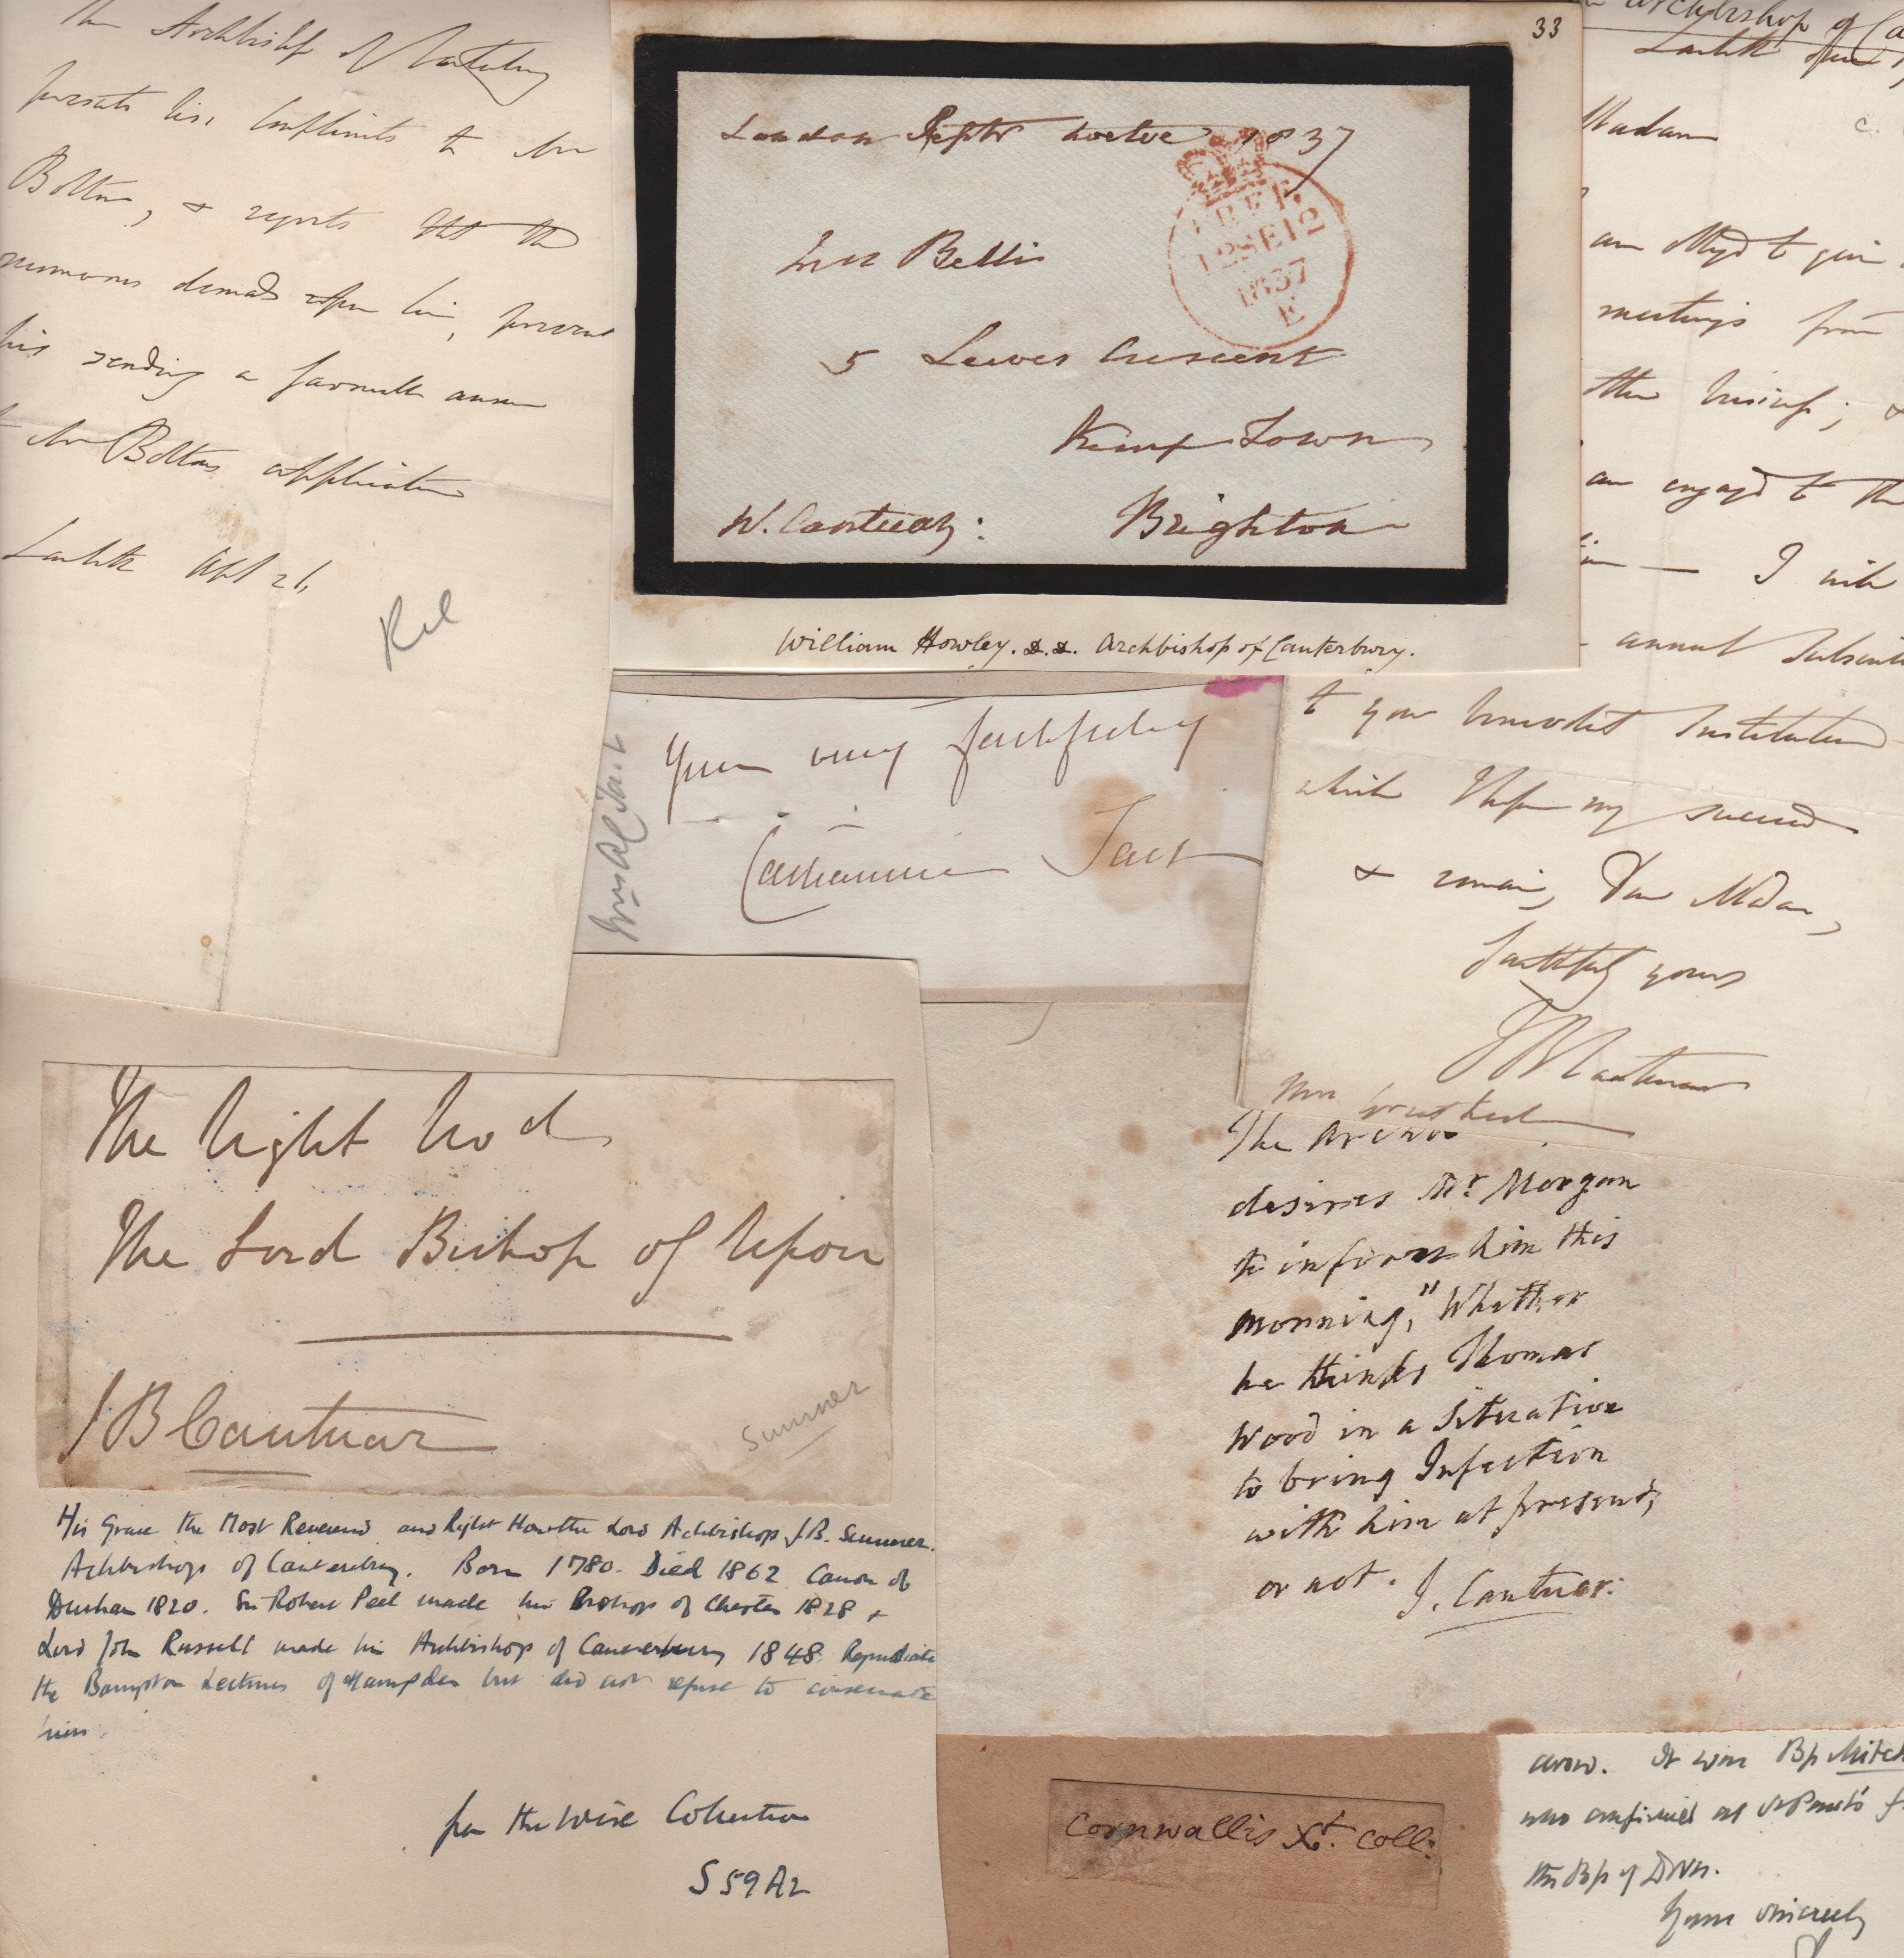 The Archbishop of Canterbury
presents his Compliments to Mr
Bolton, & regrets that the
numerous demands upon him, prevent
his sending a favourable answer
to Mr Boltons application
Lambeth
33
London Septr twelve 1837
FREE
12SE12
1837
E
Bellis
5 Lewes Crescent
Kemp Town
W. Cantuar:
Brighton
William Howley. D.D. Archbishop of Canterbury.
Archbishop of Ca
Lambeth
Madam
c.
am obliged to give
meetings from
other business; &
am engaged to th
I will
annual Subscri
to your benevolent Institution
which I hope may succeed
& remain, Dear Madam,
faithfully yours
J B Cantuar
Mrs
Yours very faithfully
Catharine Tait
Mrs A C Tait
The Right Revd
The Lord Bishop of Ripon
J B Cantuar
Sumner
His Grace the Most Reverend and Right Hon the Lord Archbishop J.B. Sumner.
Archbishop of Canterbury. Born 1780. Died 1862 Canon of
Durham 1820. Sir Robert Peel made him Bishop of Chester 1828 &
Lord John Russell made him Archbishop of Canterbury 1848. Repudiate
the Bampton Lectures of Hampden but did not refuse to consecrate
him
from the Wise Collection
S59A2
The
desires Mr. Morgan
to inform him this
morning," Whether
he thinks Thomas
Wood in a Situation
to bring Infection
with him at present,
or not. J. Cantuar:
Cornwallis Xt. Coll:
arow. It was Bp Mitch
who confirmed
the Bp of
Yours sincerely